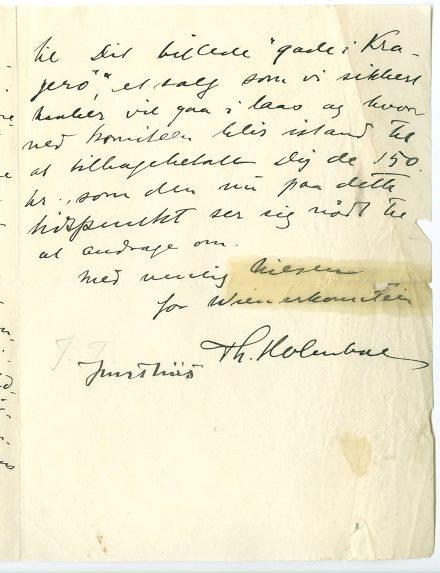 til Dit billede "gade i Kra-
gerö", et salg som vi sikkert
haaber vil gaa i laas og hvor
ved komiteen blir istand til
at tilbagebetale Dig de 150.
kr., som den nu paa dette
tidspunkt ser sig nödt til
at andrage om.
Med venlig hilsen
for Wienerkomiteen
Th. Holmboe